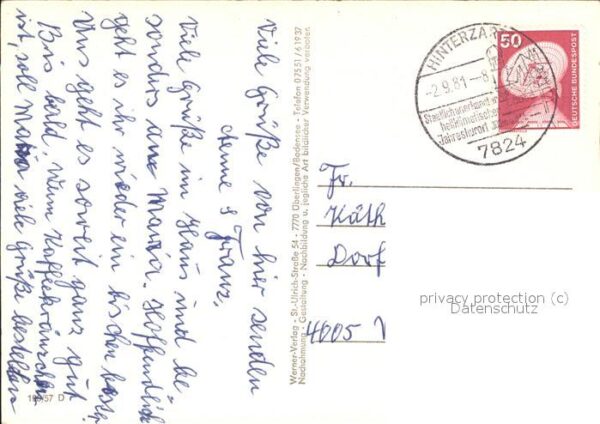 Viele Grüße von hier senden
Änne & Franz,
Viele Grüße im Haus und be-
sonders an Maria. Hoffendlich
geht es ihr wieder ein bischen besser
Uns geht es soweit ganz gut
Bis bald. Vom Kaffeekränzchen
ist, soll Maria viele Grüße bestellen
199/57 D
Werner-Verlag - St.-Ulrich-Straße 54 - 7770 Überlingen/Bodensee - Telefon 07551/61937
Nachahmung - Gestaltung - Nachbildung u. jegliche Art bildlicher Verwendung verboten
HINTERZAR
-2.9.81-8
Staatlich anerkannt
heilklimatischer
Jahreskurort
7824
50
DEUTSCHE BUNDESPOST
Fr.
Käth
Dorf
4005
privacy protection (c)
Datenschutz